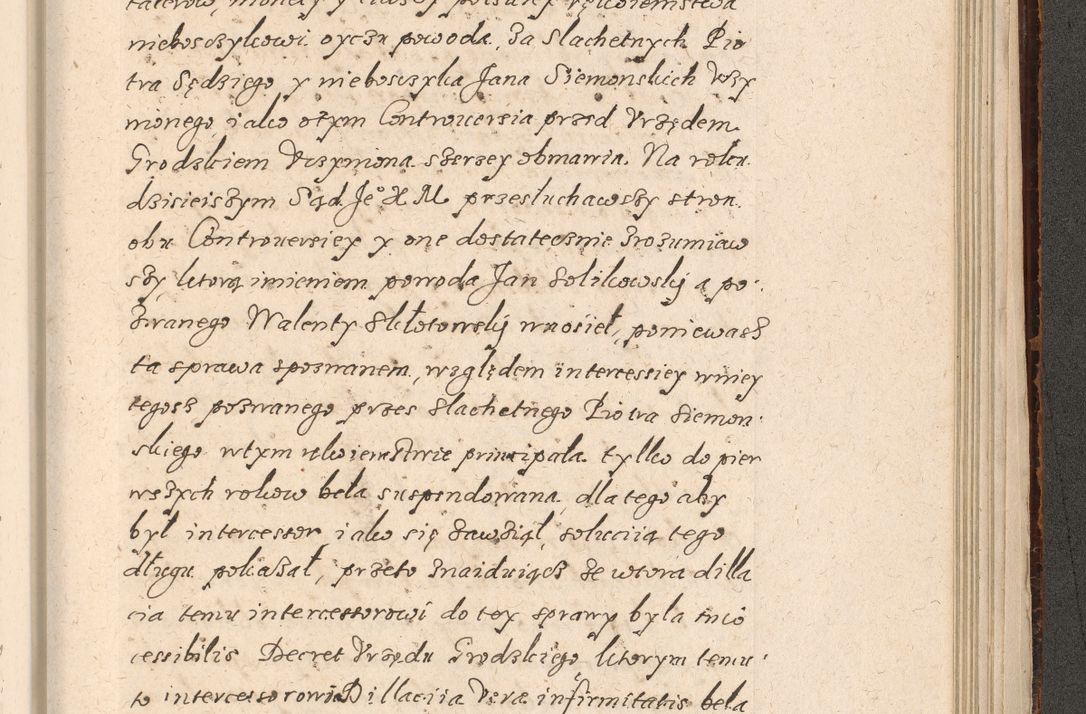 talerow, monety y liczby polskiey rękoiemstwa
nieboszczykowi oyczu powoda, za slachetnych Pio
tra Sędziego y nieboszczyka Jana Siemonskich Vczy
nionego, iako o tym Controuersia przed Vrzędem
Grodzkiem Vczyniona szerzey obmawia. Na roku
dzisieiszym Sąd Je° X M. przesłuchawszy stron
obu Controuersiey y one dostatecznie zrozumiaw
szy, ktorą imieniem powoda Jan Solikowskij a po
zwanego Walenty Skłotowskij wnosieł, poniewasz
ta sprawa spoznanem, względem intercessiey wniey
tegosz pozwanego przes slachetnego Piotra Siemon
skiego wtym rękoiemstwie principała tylko do pier
wszych rokow beła suspendowana, dla tego aby
był intercessor iako się zawziął, soluciią tego
długu pokazał, przeto znaiduiącz że wtora dilla
cia temu intercessorowi do tey sprawy była inac
cessibilis Decret Vrzędu Grodzkiego ktorym temu
to intercessorowi Dillaciia Vera infirmitatis beła